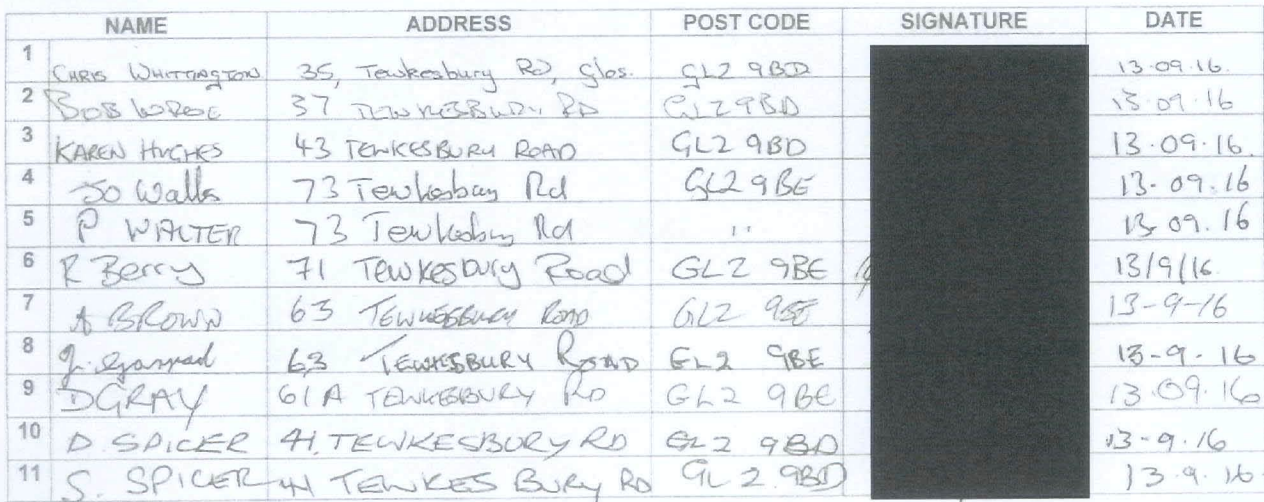 NAME ADDRESS POST CODE SIGNATURE DATE
1 CHRIS WHITTINGTON 35, Tewkesbury RD, Glos. GL2 9BD 13.09.16.
2 BOB WROE 37 TEWKESBURY RD GL2 9BD 13.09.16
3 KAREN HUGHES 43 TEWKESBURY ROAD GL2 9BD 13.09.16.
4 Jo Walls 73 Tewkesbury Rd GL2 9BE 13-09.16
5 P WALTER 73 Tewkesbury Rd ,, 13.09.16
6 R Berry 71 Tewkesbury Road GL2 9BE 13/9/16.
7 A BROWN 63 TEWKESBURY ROAD GL2 9BE 13-9-16
8 63 TEWKESBURY ROAD GL2 9BE 13-9-16
9 D GRAY 61A TEWKESBURY RD GL2 9BE 13.09.16
10 D. SPICER 41, TEWKESBURY RD GL2 9BD 13-9.16
11 S. SPICER 41 TEWKESBURY RD GL2 9BD 13.9.16.